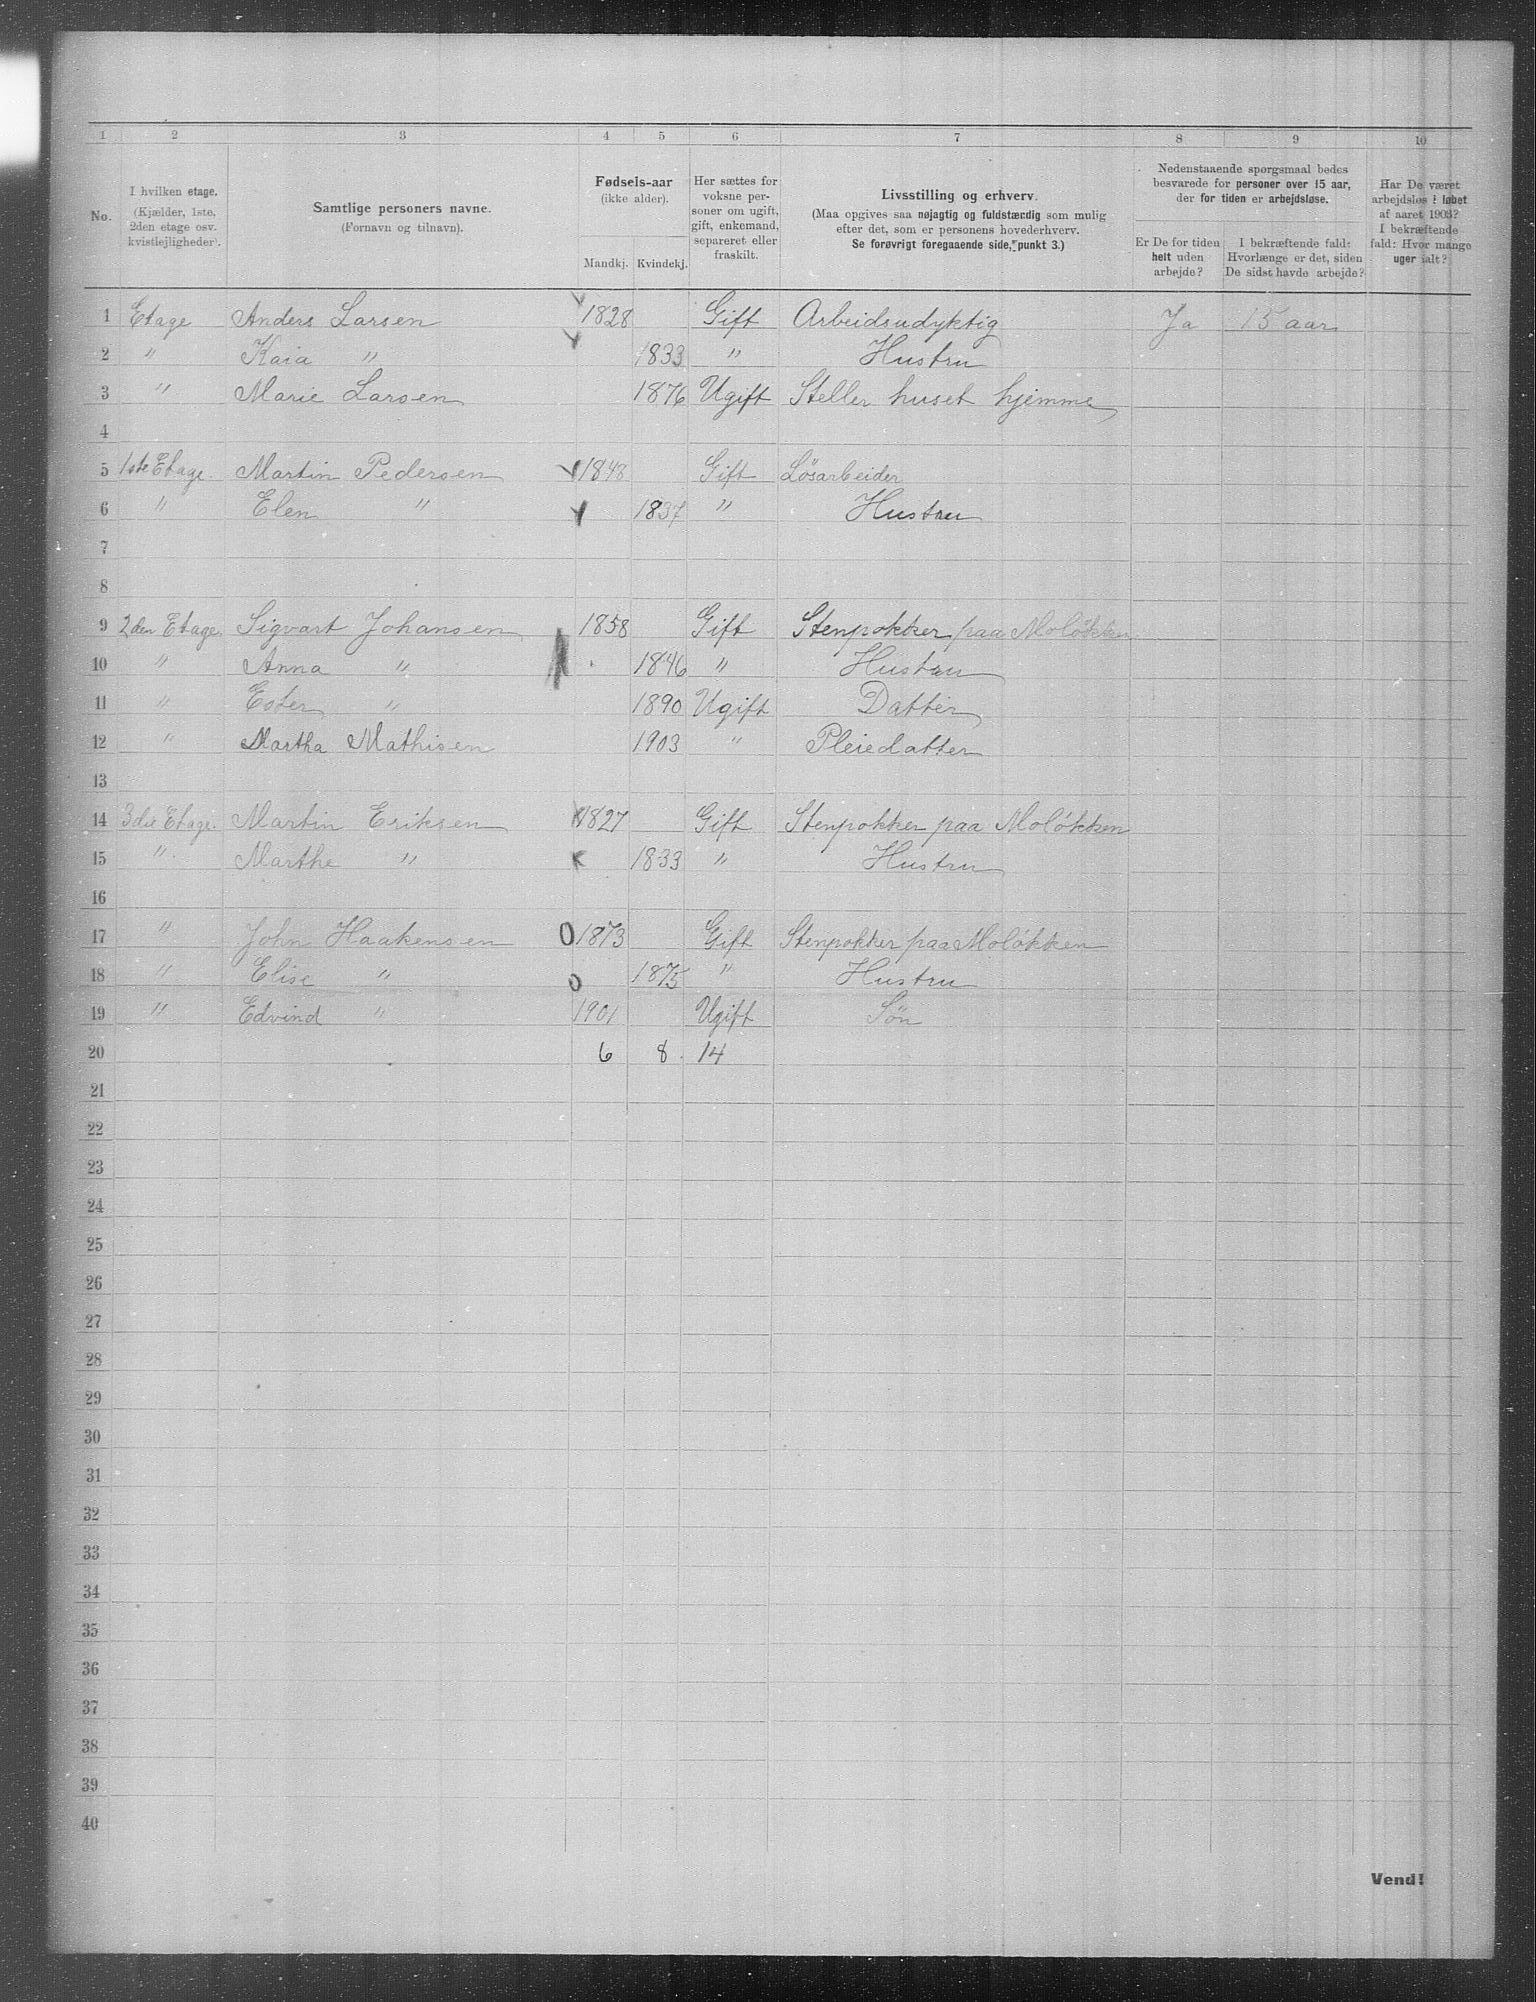 1 2 3 4 5 6 7 8 9 10
No.
I hvilken etage.
(Kjælder, 1ste,
2den etage osv.
kvistlejligheder).
Samtlige personers navne.
(Fornavn og tilnavn).
Fødsels-aar
(ikke alder).
Mandkj. Kvindekj.
Her sættes for
voksne per-
soner om ugift,
gift, enkemand,
separeret eller
fraskilt.
Livsstilling og erhverv.
(Maa opgives saa nøjagtig og fuldstændig som mulig
efter det, som er personens hovederhverv.
Se forøvrigt foregaaende side, punkt 3.)
Nedenstaaende spørgsmaal bedes
besvarede for personer over 15 aar,
der for tiden er arbejdsløse.
Er De for tiden
helt uden
arbejde?
I bekræftende fald:
Hvorlænge er det, siden
De sidst havde arbejde?
Har De været
arbejdsløs i løbet
af aaret 1903?
I bekræftende
fald: Hvor mange
uger ialt?
1 Etage Anders Larsen 1828 Gift Arbeidsudyktig Ja 15 aar
2 " Kaia " 1833 " Hustru
3 " Marie Larsen 1876 Ugift Steller huset hjemme
4
5 1ste Etage. Martin Pedersen 1848 Gift Løsarbeider
6 " Elen " 1837 " Hustru
7
8
9 2den Etage. Sigvart Johansen 1858 Gift Stenpokker paa Moløkken
10 " Anna " 1846 " Hustru
11 " Ester " 1890 Ugift Datter
12 " Martha Mathisen 1903 " Pleiedatter
13
14 3die Etage. Martin Eriksen 1827 Gift Stenpokker paa Moløkken
15 " Marthe " 1833 " Hustru
16
17 " John Haakensen 0 1873 Gift Stenpokker paa Moløkken
18 " Elise " 0 1875 " Hustru
19 " Edvind " 1901 Ugift Søn
20 6 8 14
21
22
23
24
25
26
27
28
29
30
31
32
33
34
35
36
37
38
39
40
Vend!